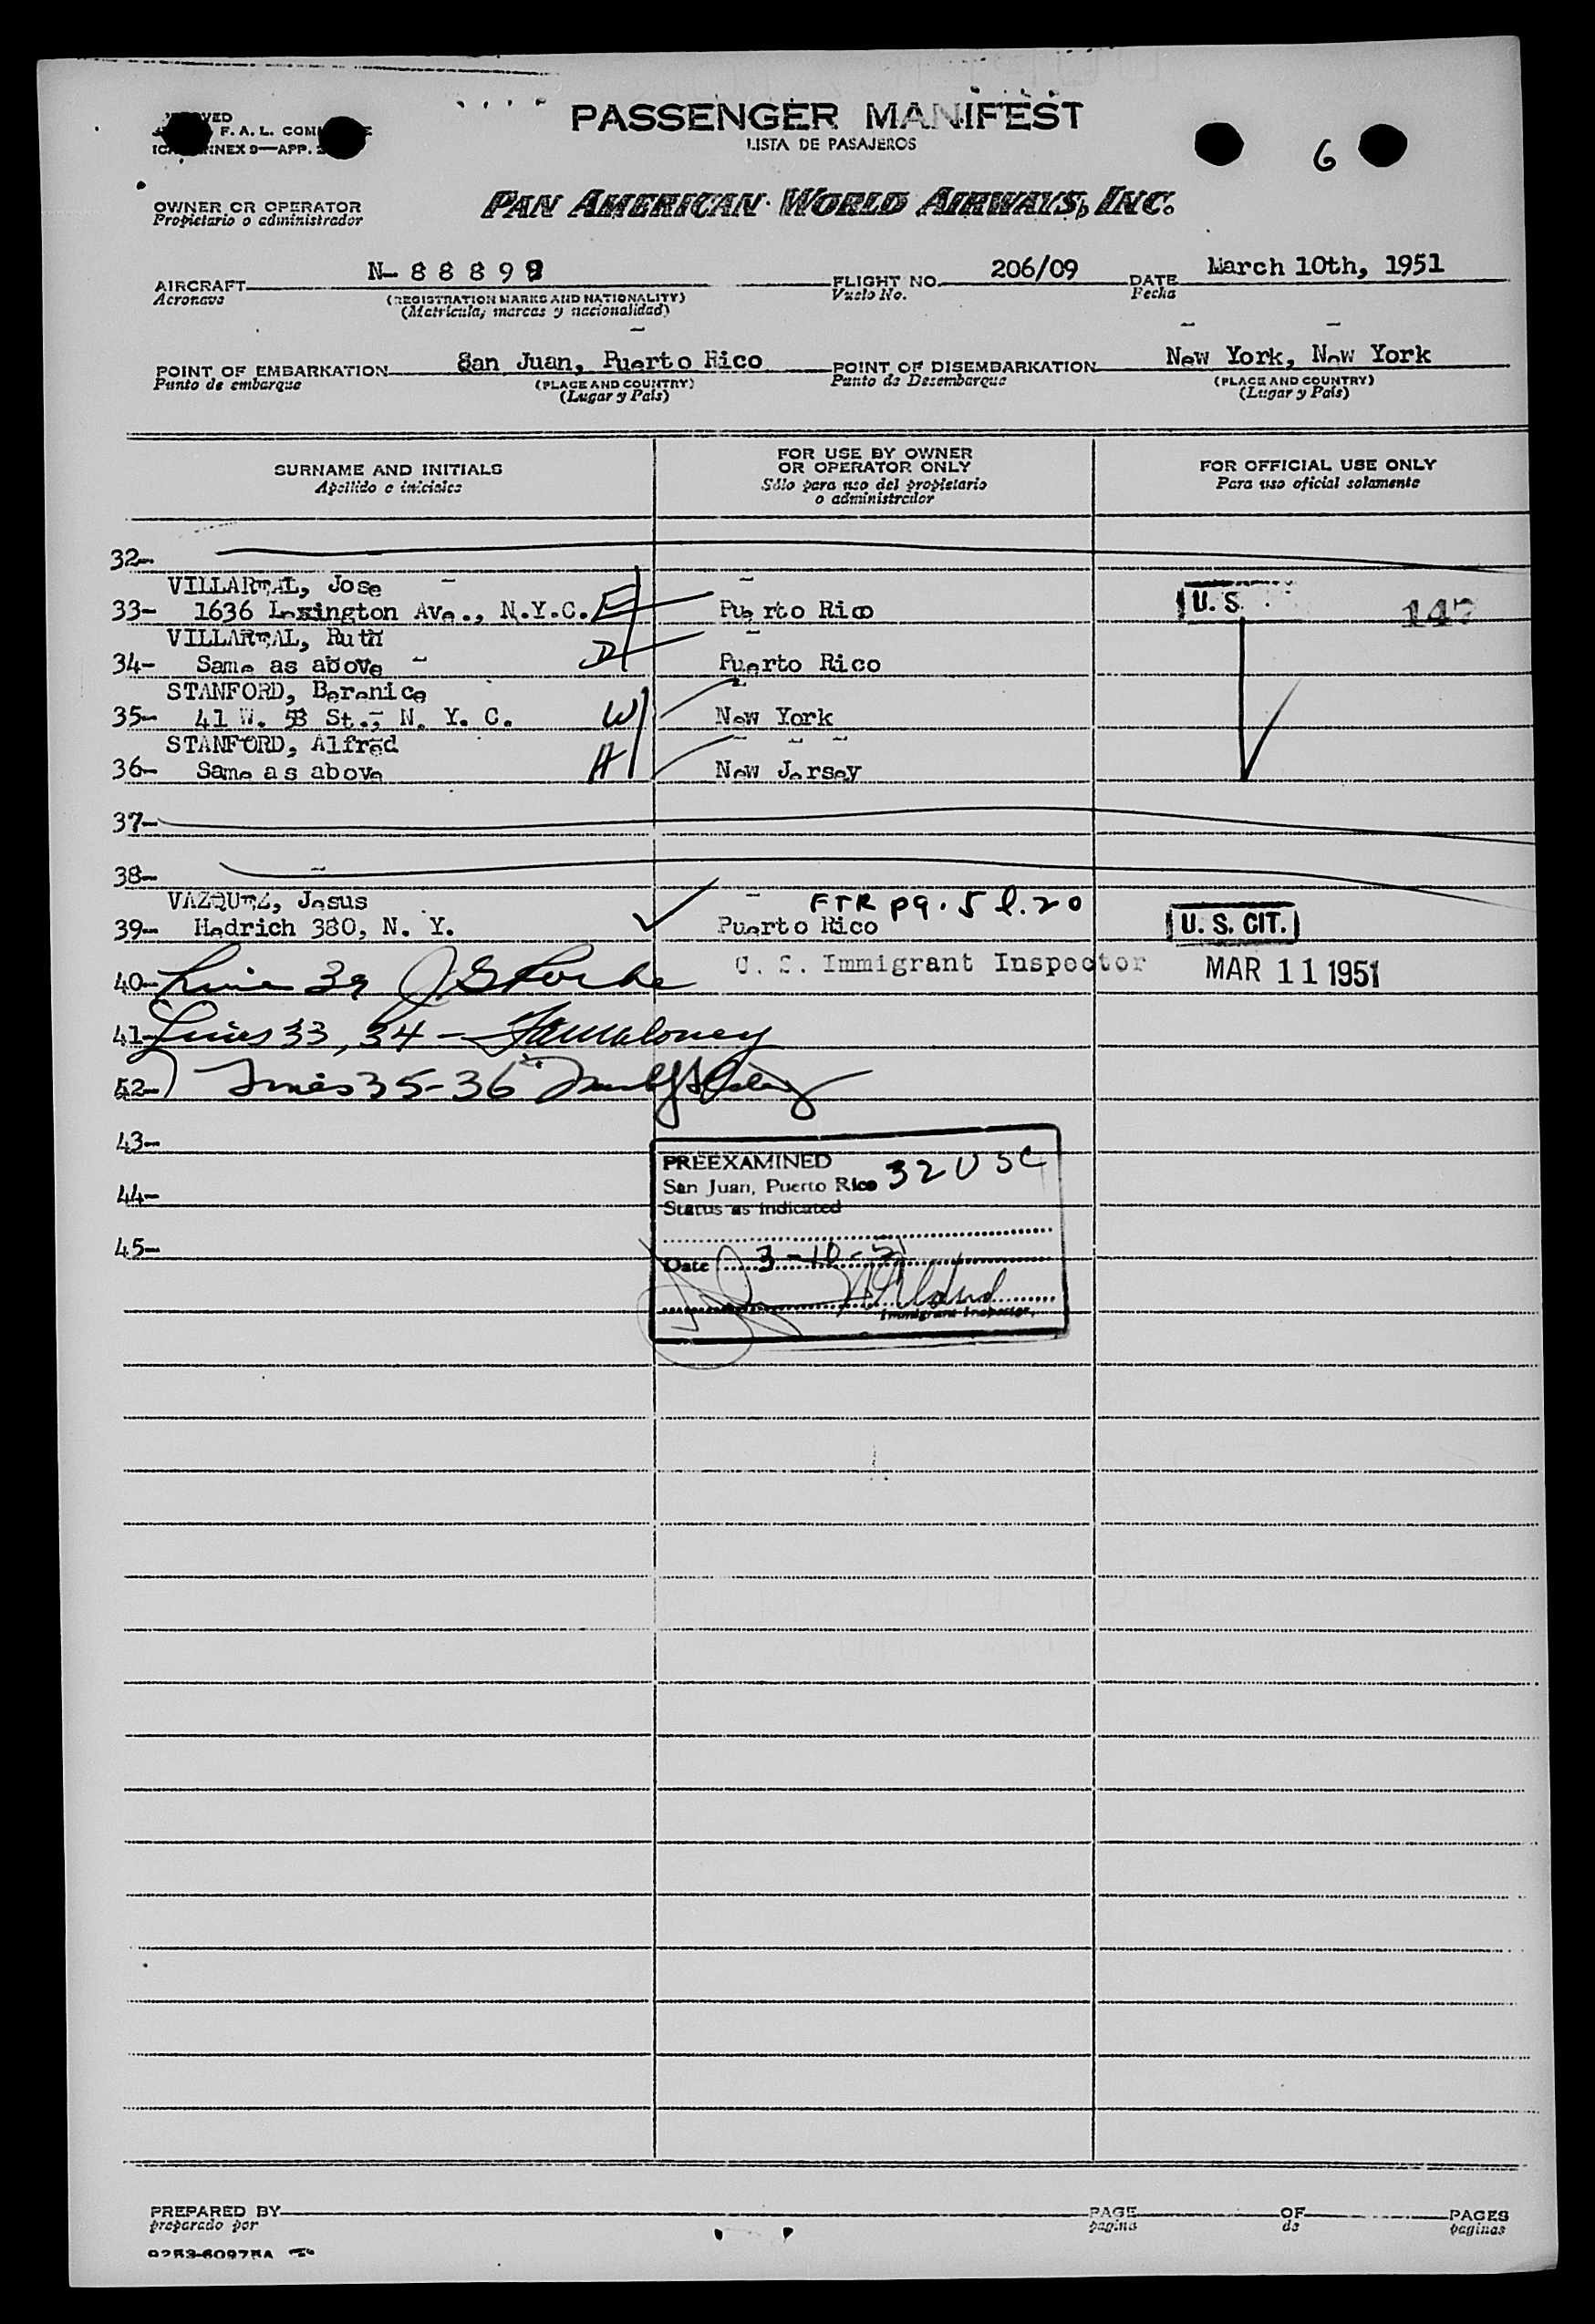 PASSENGER MANIFEST
LISTA DE PASAJEROS
F. A. L.
9—APP.
6
OWNER OR OPERATOR
Propietario o administrador
PAN AMERICAN WORLD AIRWAYS, INC.
AIRCRAFT N- 8 8 8 9 9 FLIGHT NO. 206/09 DATE March 10th, 1951
Aeronave (REGISTRATION MARKS AND NATIONALITY) Vuelo No. Fecha
(Matricula, marcas y nacionalidad)
POINT OF EMBARKATION San Juan, Puerto Rico POINT OF DISEMBARKATION New York, New York
Punto de embarque (PLACE AND COUNTRY) Punto de Desembarque (PLACE AND COUNTRY)
(Lugar y País) (Lugar y País)
SURNAME AND INITIALS
Apellido e iniciales
FOR USE BY OWNER
OR OPERATOR ONLY
Sólo para uso del propietario
o administrador
FOR OFFICIAL USE ONLY
Para uso oficial solamente
32-
VILLAREAL, Jose
33- 1636 Lexington Ave., N.Y.C. Puerto Rico U. S. 147
VILLAREAL, Ruth
34- Same as above Puerto Rico
STANFORD, Berenice
35- 41 W. 53 St., N. Y. C. W New York
STANFORD, Alfred
36- Same as above H New Jersey
37-
38-
VAZQUEZ, Jesus FTR pg. 5 l. 20
39- Hedrich 380, N. Y. Puerto Rico U. S. CIT.
40- Line 39 U. S. Immigrant Inspector MAR 11 1951
41- Lines 33, 34 -
52- Lines 35-36
43-
PREEXAMINED 32 USC
San Juan, Puerto Rico
44-
Status as indicated
45-
Date 3-10-51
Immigrant Inspector.
PREPARED BY PAGE OF PAGES
preparado por pagina de paginas